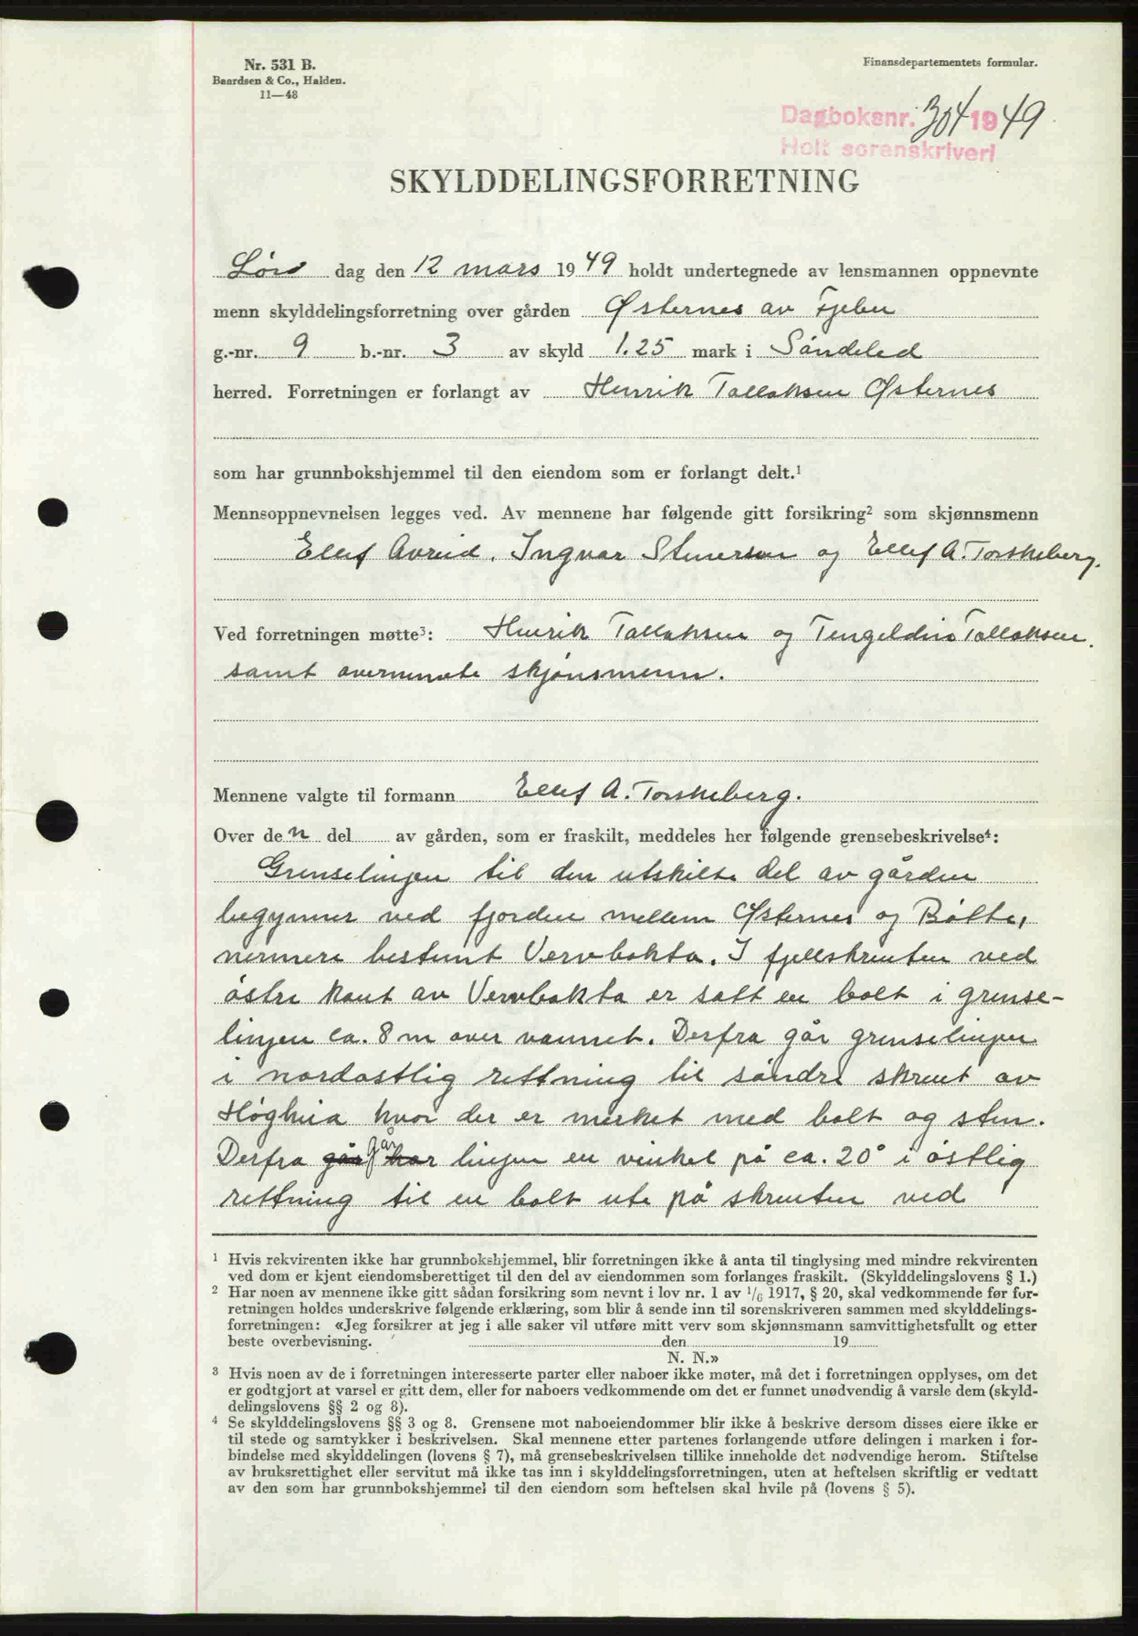 Nr. 531 B.
Baardsen & Co., Halden.
11—48
Finansdepartementets formular.
Dagboksnr. 304 1949
Holt sorenskriveri
SKYLDDELINGSFORRETNING
Lørs dag den 12 mars 1949 holdt undertegnede av lensmannen oppnevnte
menn skylddelingsforretning over gården Østernes av Fjeber
g.-nr. 9 b.-nr. 3 av skyld 1.25 mark i Søndeled
herred. Forretningen er forlangt av Henrik Tallaksen Østernes
som har grunnbokshjemmel til den eiendom som er forlangt delt.¹
Mennsoppnevnelsen legges ved. Av mennene har følgende gitt forsikring² som skjønnsmenn
Ellef Avreid, Ingvar Simersen og Ellef A. Torskeberg.
Ved forretningen møtte³: Henrik Tallaksen og Tengeldine Tallaksen.
samt overnevnte skjønsmenn.
Mennene valgte til formann Ellef A. Torskeberg.
Over den del av gården, som er fraskilt, meddeles her følgende grensebeskrivelse⁴:
Grenselinjen til den utskilte del av gården
begynner ved fjorden mellem Østernes og Bølte,
nermere bestemt Vervbakta. I fjellskrenten ved
østre kant av Vervbakta er satt en bolt i grense-
linjen ca. 8 m over vannet. Derfra går grenselinjen
i nordøstlig rettning til søndre skrent av
Høgheia hvor der er merket med bolt og sten.
Derfra går har går linjen en vinkel på ca. 20° i østlig
rettning til en bolt ute på skrenten ved
¹ Hvis rekvirenten ikke har grunnbokshjemmel, blir forretningen ikke å anta til tinglysing med mindre rekvirenten
ved dom er kjent eiendomsberettiget til den del av eiendommen som forlanges fraskilt. (Skylddelingslovens § 1.)
² Har noen av mennene ikke gitt sådan forsikring som nevnt i lov nr. 1 av 1/6 1917, § 20, skal vedkommende før for-
retningen holdes underskrive følgende erklæring, som blir å sende inn til sorenskriveren sammen med skylddelings-
forretningen: «Jeg forsikrer at jeg i alle saker vil utføre mitt verv som skjønnsmann samvittighetsfullt og etter
beste overbevisning. den 19
N. N.»
³ Hvis noen av de i forretningen interesserte parter eller naboer ikke møter, må det i forretningen opplyses, om det
er godtgjort at varsel er gitt dem, eller for naboers vedkommende om det er funnet unødvendig å varsle dem (skyld-
delingslovens §§ 2 og 8).
⁴ Se skylddelingslovens §§ 3 og 8. Grensene mot naboeiendommer blir ikke å beskrive dersom disses eiere ikke er
til stede og samtykker i beskrivelsen. Skal mennene etter partenes forlangende utføre delingen i marken i for-
bindelse med skylddelingen (lovens § 7), må grensebeskrivelsen tillike inneholde det nødvendige herom. Stiftelse
av bruksrettighet eller servitut må ikke tas inn i skylddelingsforretningen, uten at heftelsen skriftlig er vedtatt
av den som har grunnbokshjemmel til den eiendom som heftelsen skal hvile på (lovens § 5).